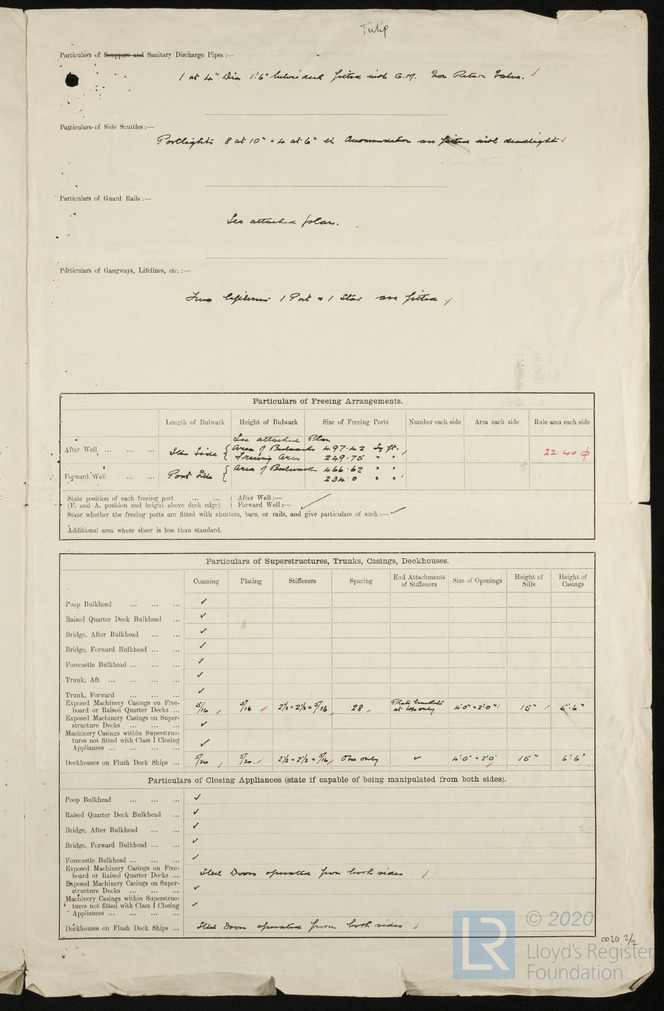 Tulip
Particulars of Scuppers and Sanitary Discharge Pipes :—
1 at 4" Dia 1'6" below deck fitted with G.M. Non Return Valve.
Particulars of Side Scuttles :—
Portlights 8 at 10" + 4 at 6" in Accommodation are fitted with deadlights
Particulars of Guard Rails :—
See attached plan.
Particulars of Gangways, Lifelines, etc. :—
Two lifelines 1 Port & 1 Star are fitted
Particulars of Freeing Arrangements.
Length of Bulwark Height of Bulwark Size of Freeing Ports Number each side Area each side Rule area each side
See attached Plan
After Well ... ... ... Star Side { Area of Bulwark 497.42 Sq ft. 22.40
Freeing Area 249.75 " "
Forward Well ... ... Port Side { Area of Bulwark 466.62 " "
234.0 " "
State position of each freeing port ... ... After Well :—
(F. and A. position and height above deck edge) Forward Well :— ✓
State whether the freeing ports are fitted with shutters, bars, or rails, and give particulars of such :— ✓
Additional area where sheer is less than standard.
Particulars of Superstructures, Trunks, Casings, Deckhouses.
Coaming Plating Stiffeners Spacing End Attachments of Stiffeners Size of Openings Height of Sills Height of Casings
Poop Bulkhead ... ... ... ✓
Raised Quarter Deck Bulkhead ... ✓
Bridge, After Bulkhead ... ... ✓
Bridge, Forward Bulkhead ... ... ✓
Forecastle Bulkhead ... ... ... ✓
Trunk, Aft ... ... ... ... ✓
Trunk, Forward ... ... ... ✓
Exposed Machinery Casings on Free-
board or Raised Quarter Decks ... 5/16 5/16 2½ × 2½ × 5/16 28 at top only 4'0" × 2'0" 15" 6'6"
Exposed Machinery Casings on Super-
structure Decks ... ... ... ✓
Machinery Casings within Superstruc-
tures not fitted with Class I Closing
Appliances ... ... ... ... ✓
Deckhouses on Flush Deck Ships ... 7/20 7/20 2½ × 2½ × 5/16 One only ✓ 4'0" × 2'0" 15" 6'6"
Particulars of Closing Appliances (state if capable of being manipulated from both sides).
Poop Bulkhead ... ... ... ✓
Raised Quarter Deck Bulkhead ... ✓
Bridge, After Bulkhead ... ... ✓
Bridge, Forward Bulkhead ... ... ✓
Forecastle Bulkhead ... ... ... ✓
Exposed Machinery Casings on Free-
board or Raised Quarter Decks ... Steel Doors operated from both sides
Exposed Machinery Casings on Super-
structure Decks ... ... ... ✓
Machinery Casings within Superstruc-
tures not fitted with Class I Closing
Appliances ... ... ... ... ✓
Deckhouses on Flush Deck Ships ... Steel Doors operated from both sides
LR © 2020
Lloyd's Register
Foundation
0020 2/2